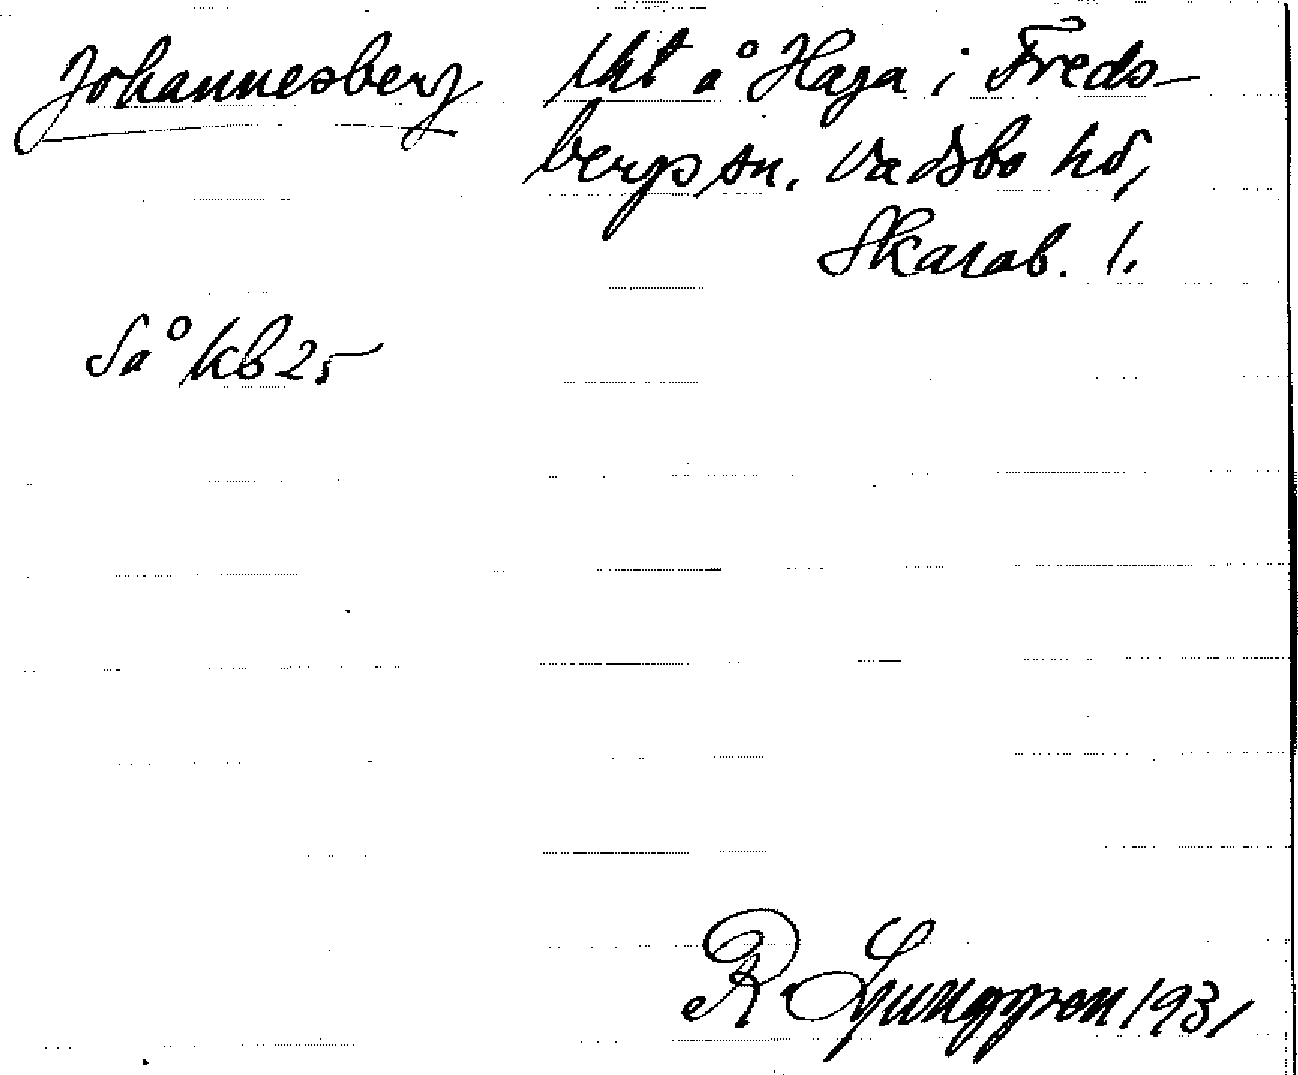 Johannesberg lht å Haga i Freds-
bergs sn. Vadsbo hd,
Skarab. l.
Så kb 25
R Ljunggren 1931